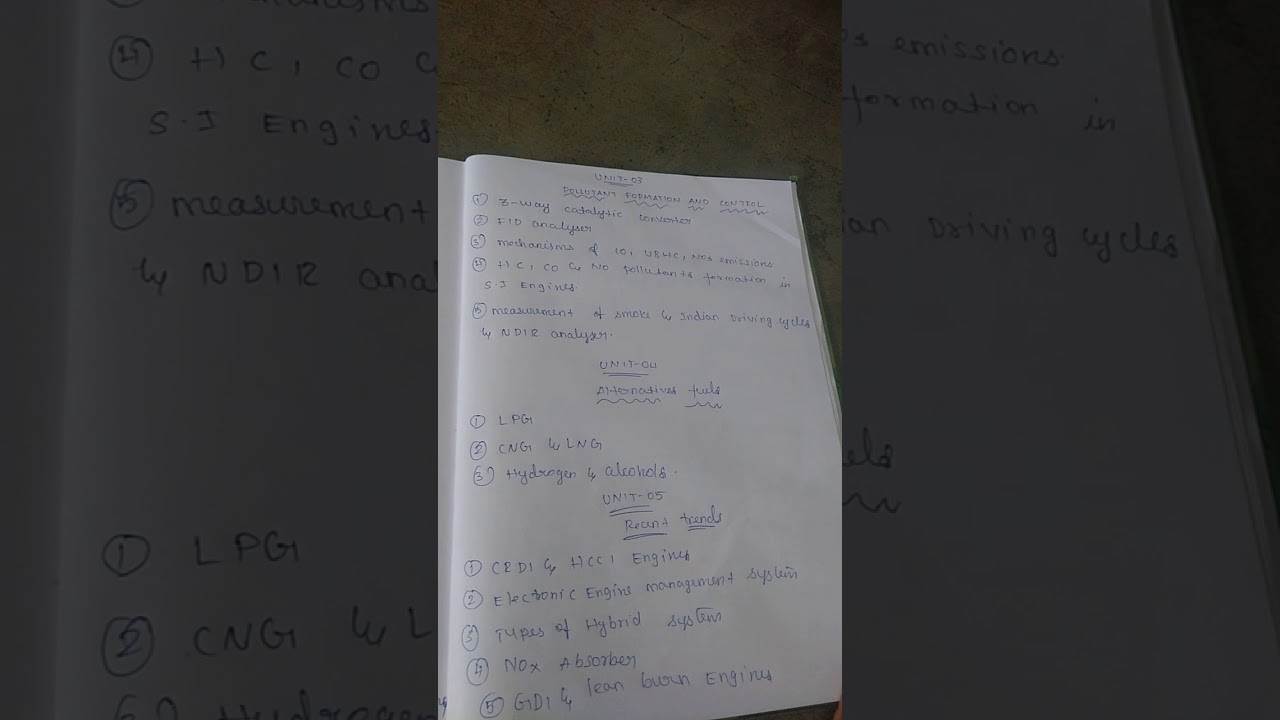 UNIT-03
POLLUTANT FORMATION AND CONTROL
① 3-way catalytic converter
② FID analyser
③ mechanisms of CO, UBHC, NOx emissions
④ HC, CO & NO pollutants formation in
S.I Engines.
⑤ measurement of smoke & Indian Driving cycles
& NDIR analyser.
UNIT-04
Alternatives fuels
① LPG
② CNG & LNG
③ Hydrogen & alcohols.
UNIT-05
Recent trends
① CRDI & HCCI Engines
② Electronic Engine management system
③ Types of Hybrid system
④ NOx Absorber
⑤ GDI & lean burn Engines